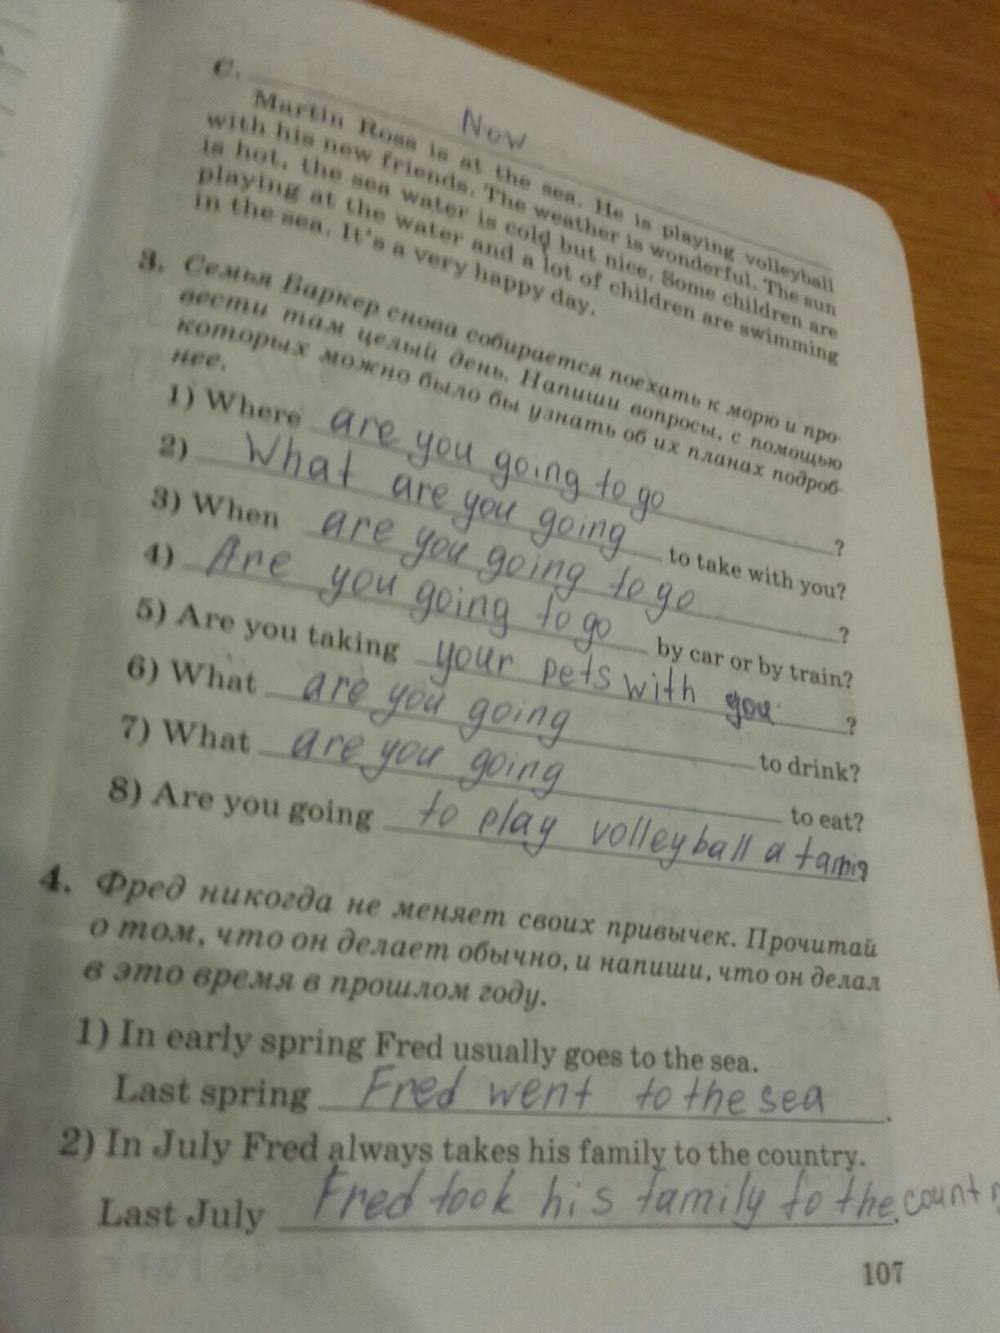 C. Now
Martin Ross is at the sea. He is playing volleyball
with his new friends. The weather is wonderful. The sun
is hot, the sea water is cold but nice. Some children are
playing at the water and a lot of children are swimming
in the sea. It's a very happy day.
3. Семья Баркер снова собирается поехать к морю и про-
вести там целый день. Напиши вопросы, с помощью
которых можно было бы узнать об их планах подроб-
нее.
1) Where are you going to go ?
2) What are you going to take with you?
3) When are you going to go ?
4) Are you going to go by car or by train?
5) Are you taking your pets with you ?
6) What are you going to drink?
7) What are you going to eat?
8) Are you going to play volleyball a
4. Фред никогда не меняет своих привычек. Прочитай
о том, что он делает обычно, и напиши, что он делал
в это время в прошлом году.
1) In early spring Fred usually goes to the sea.
Last spring Fred went to the sea .
2) In July Fred always takes his family to the country.
Last July Fred took his family to the .
107